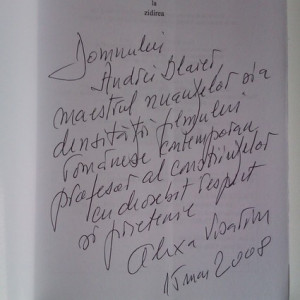 la
zidirea
Domnului
Andrei Blaier,
maestrul nuanțelor și a
densității filmului
românesc contemporan
profesor al conștiințelor
cu deosebit respect
și prietenie
Alexa Visarion
15 mai 2008